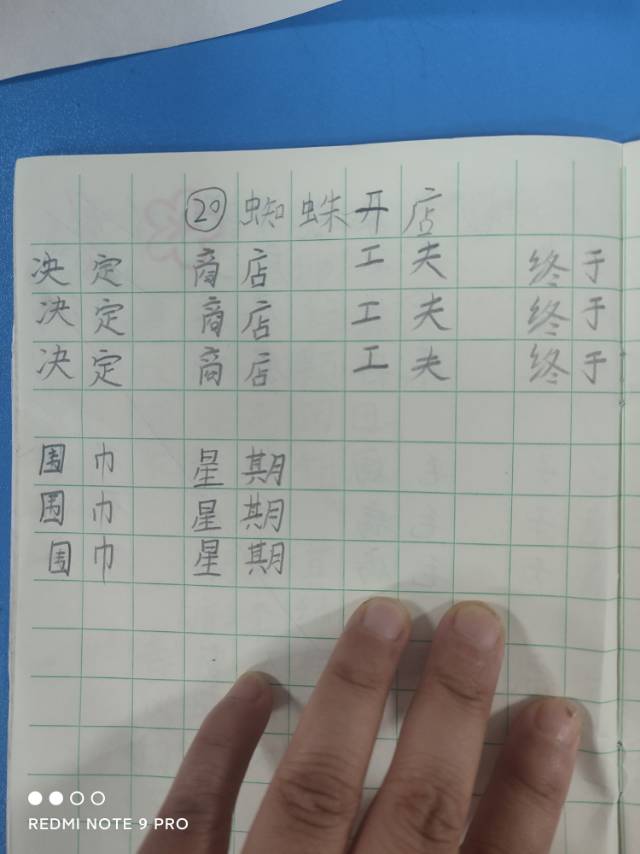 ⑳ 蜘蛛开店
决定 商店 工夫 终于
决定 商店 工夫 终于
决定 商店 工夫 终于
围巾 星期
围巾 星期
围巾 星期
REDMI NOTE 9 PRO